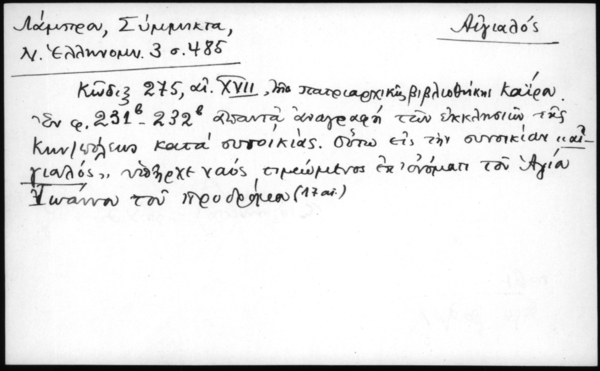 Λάμπρου, Σύμμικτα,
Αἰγιαλός
Ν. Ἑλληνομν. 3 σ. 485
Κῶδιξ 275, αἰ. XVII, τῆς πατριαρχικῆς βιβλιοθήκης Καΐρου.
Ἐν φ. 231β - 232β ἀπαντᾷ ἀναγραφή τῶν ἐκκλησιῶν τῆς
Κων/πόλεως κατά συνοικίας. Οὕτω εἰς τήν συνοικίαν «αἰ-
γιαλός», ὑπῆρχε ναός τιμώμενος ἐπ' ὀνόματι τοῦ Ἁγίου
Ἰωάννου τοῦ Προδρόμου (17 αἰ.)